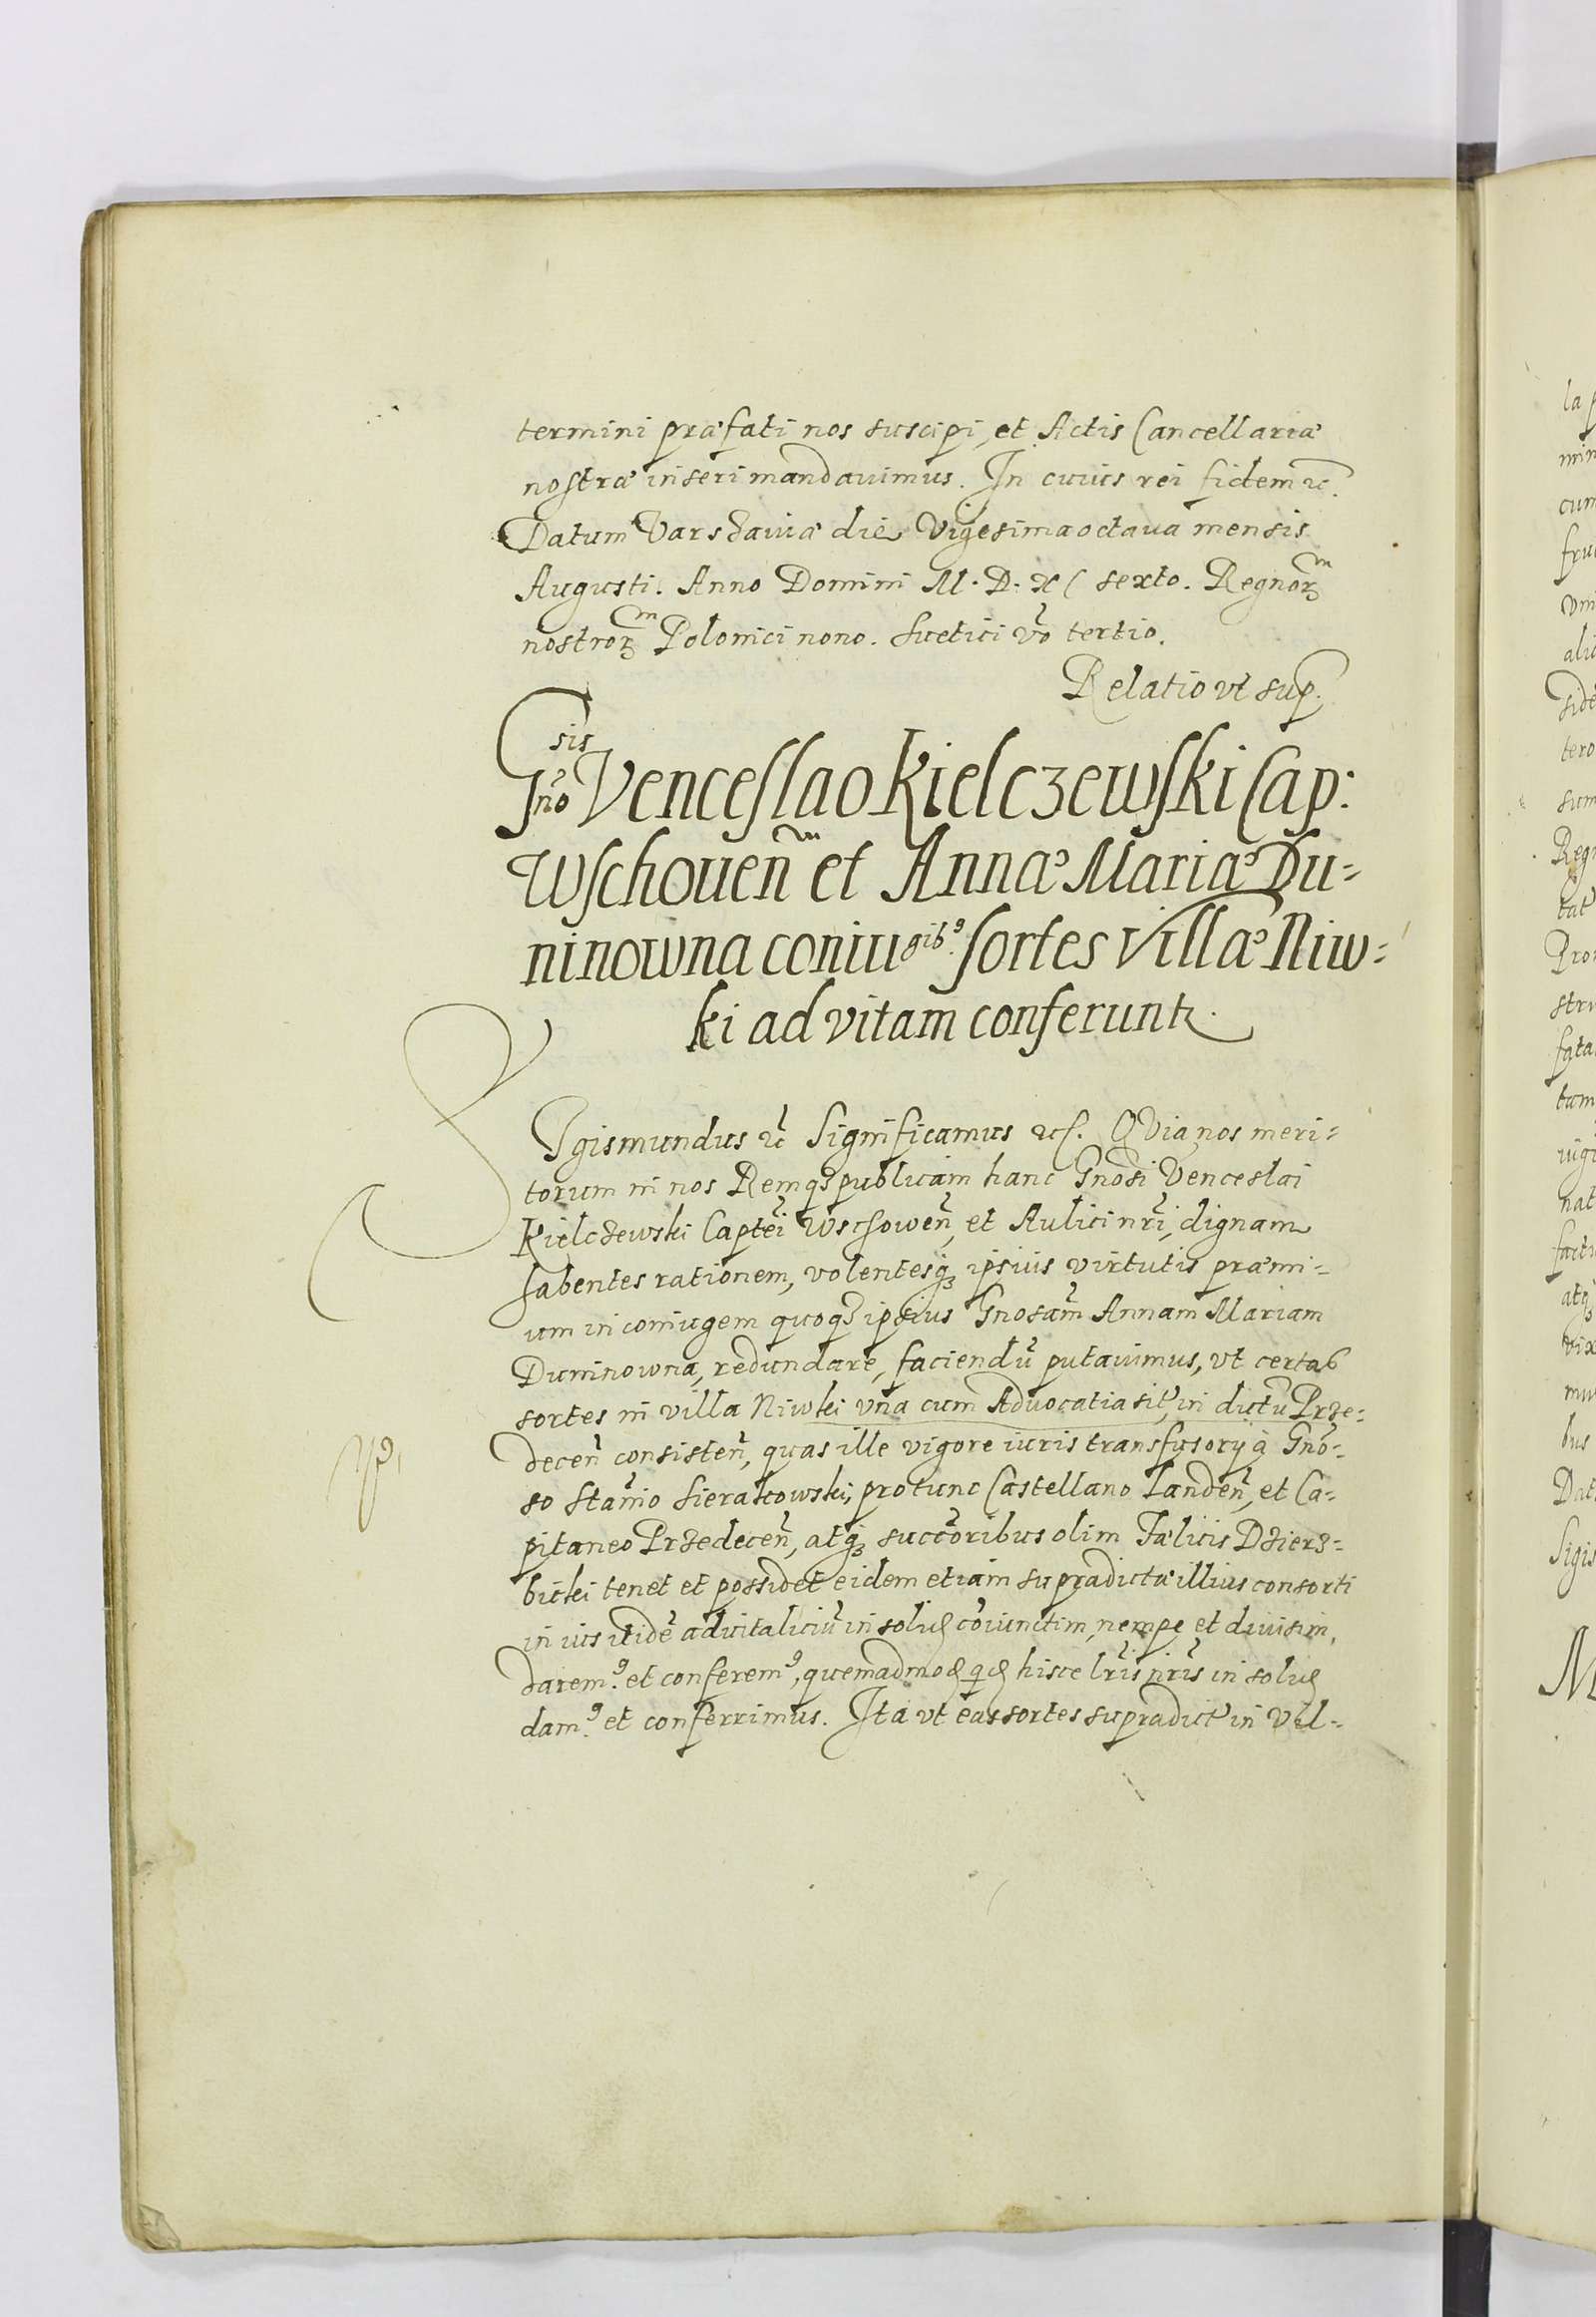 termini præfati nos suscipi, et Actis Cancellariæ
nostræ inseri mandauimus. In cuius rei fidem ꝛc.
Datum Varschauiæ die Vigesima octaua mensis
Augusti. Anno Domini M. D. XC sexto. Regnorᵐ
nostrorᵐ Polonici nono. Suetici v̄o tertio.
Relatio vt sup.
Gn̄osis Venceslao Kielczewski Cap:
Wschouen̄ et Annæ Mariæ Du-
ninowna coniugibꝰ sortes villæ Niw-
ki ad vitam conferuntr.
Sigismundus ꝛc Significamus ꝛc. QVia nos meri-
torum in nos Remqꝫ publicam hanc Gn̄osi Venceslai
Kielczewski Captei̅ Wschowen̄, et Aulici nr̄i, dignam
habentes rationem, volentesqꝫ ipsius virtutis præmi-
um in coniugem quoqꝫ ipsius Gnosam̄ Annam Mariam
Duninowna, redundare, faciendū putauimus, vt certas
sortes in villa Niwki vna cum Aduocatia sit' in dictu Prze-
decen̄ consisten̄, quas ille vigore iuris transfusorij à Gn̄o-
so Stan̄io Sierakowski, pro tunc Castellano Landen̄, et Ca-
pitaneo Przedecen̄, atqꝫ succ̄oribus olim Fælicis Dzierz-
bicki tenet et possidet eidem etiam supradictæ illius consorti
in ius itidē aduitaliciū in solid coniunctim, nempe et diuisim,
daremꝰ et conferemꝰ, quemadmod qd hisce lr̄is nr̄is in solid
damꝰ et conferrimus. Ita vt eas sortes supradict' in Vil-